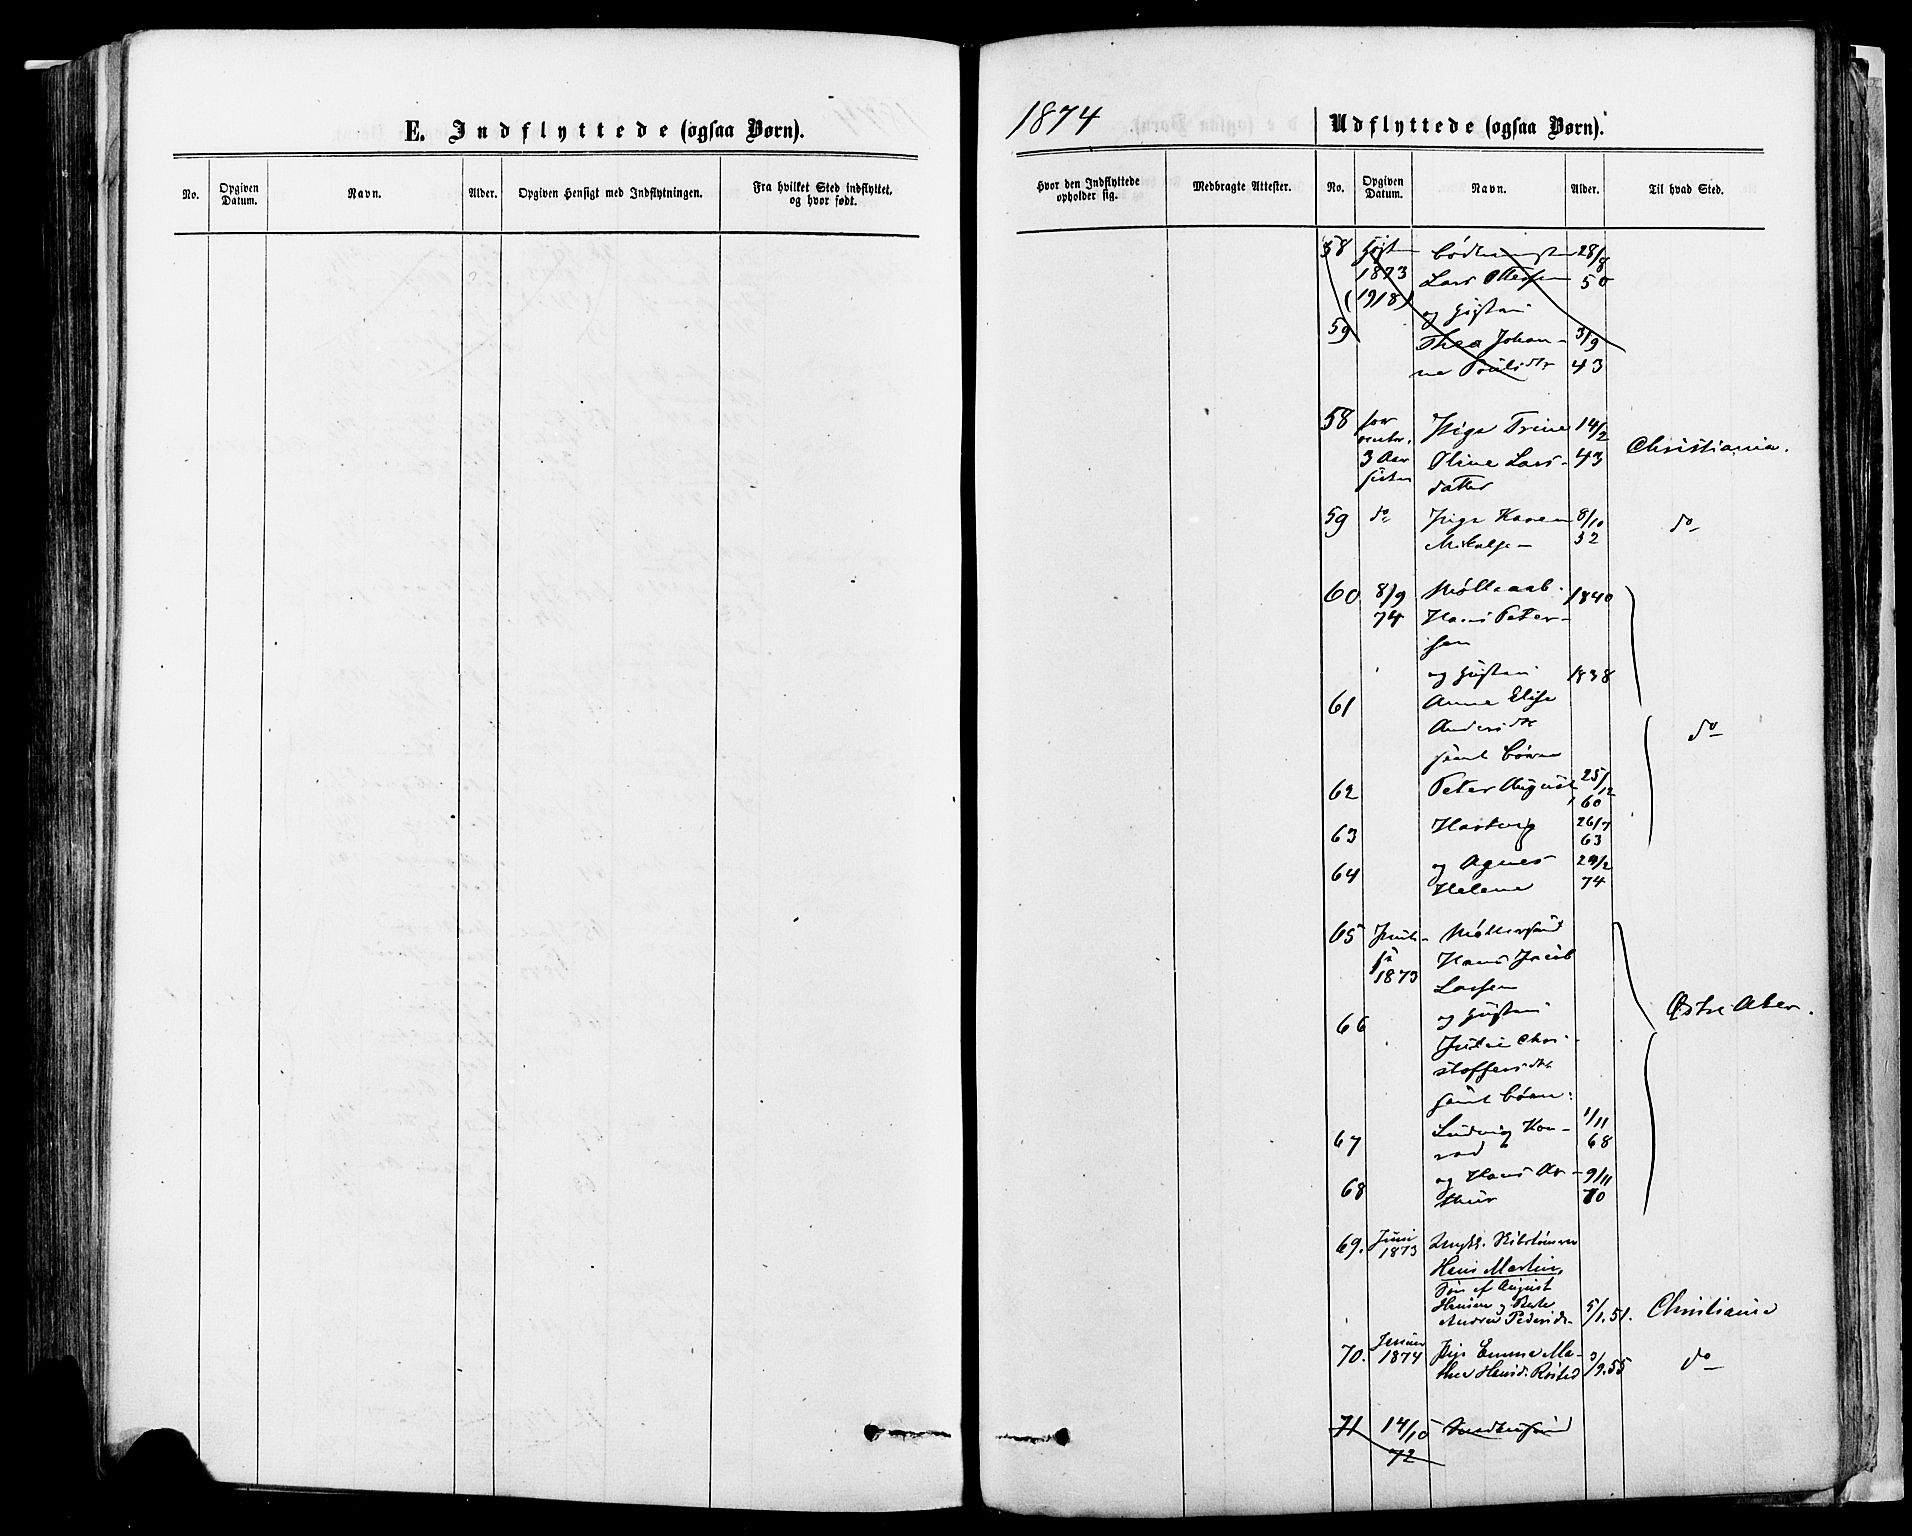 E. Indflyttede (ogsaa Børn).
No.
Opgiven Datum.
Navn.
Alder.
Opgiven Hensigt med Indflytningen.
Fra hvilket Sted indflyttet, og hvor født.
1874
Udflyttede (ogsaa Børn).
Hvor den Indflyttede opholder sig.
Medbragte Attester.
No.
Opgiven Datum.
Navn.
Alder.
Til hvad Sted.
58 28/8
1873 Lars 50
(1918) og Hustru
59 Thea Johan- 3/9
ne 43
58 for Pige Trine 14/2
Christiania.
3 Aar Oline Lars- 43
siden datter
59 do Pige Karen 8/10 do
32
60 8/9 1840
74 Hans Peter-
sen
og Hustru 1838
61 Anne Elise
Andersdtr
samt Børn do
62 Peter August 25/12
60
63 Hartvig 26/7
63
64 og Agnes 29/2
Helene 74
65
Hans Jacob
1873 Larsen
Østre Aker.
66 og Hustru
Julie Chri-
stoffersdtr
samt Børn:
67 Ludvig Kon- 1/11
rad 68
68 og Hans Ar- 9/11
thur 70
69. Juni
1873
Hans Martin,
Søn af August
Hansen og
Andrea Pedersd. 5/1.51. Christiania
70. Januar Pige Emma Ma-
1874 thea Hansd. 3/9.55 do
71 14/10
72